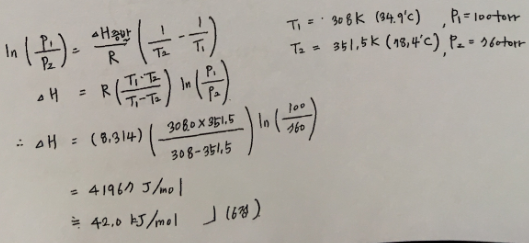 ln(P₁/P₂) = ΔH증발/R (1/T₂ - 1/T₁)
T₁ = 308K (34.9℃), P₁=100torr
T₂ = 351.5K (78.4℃), P₂=760torr
ΔH = R(T₁·T₂/T₁-T₂) ln(P₁/P₂)
∴ ΔH = (8.314)(308.0×351.5/308-351.5) ln(100/760)
= 41967 J/mol
≒ 42.0 kJ/mol 」(6점)